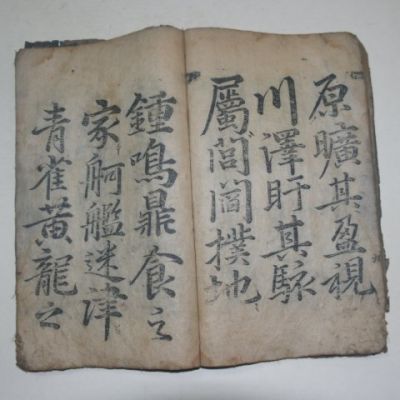 原曠其盈視
川澤盱其駭
屬閭閻撲地
鍾鳴鼎食之
家舸艦迷津
青雀黃龍之